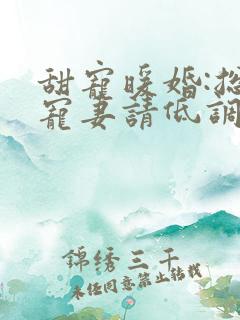 甜寵暖婚:总
寵妻請低調
錦绣三千
未经同意禁止转载